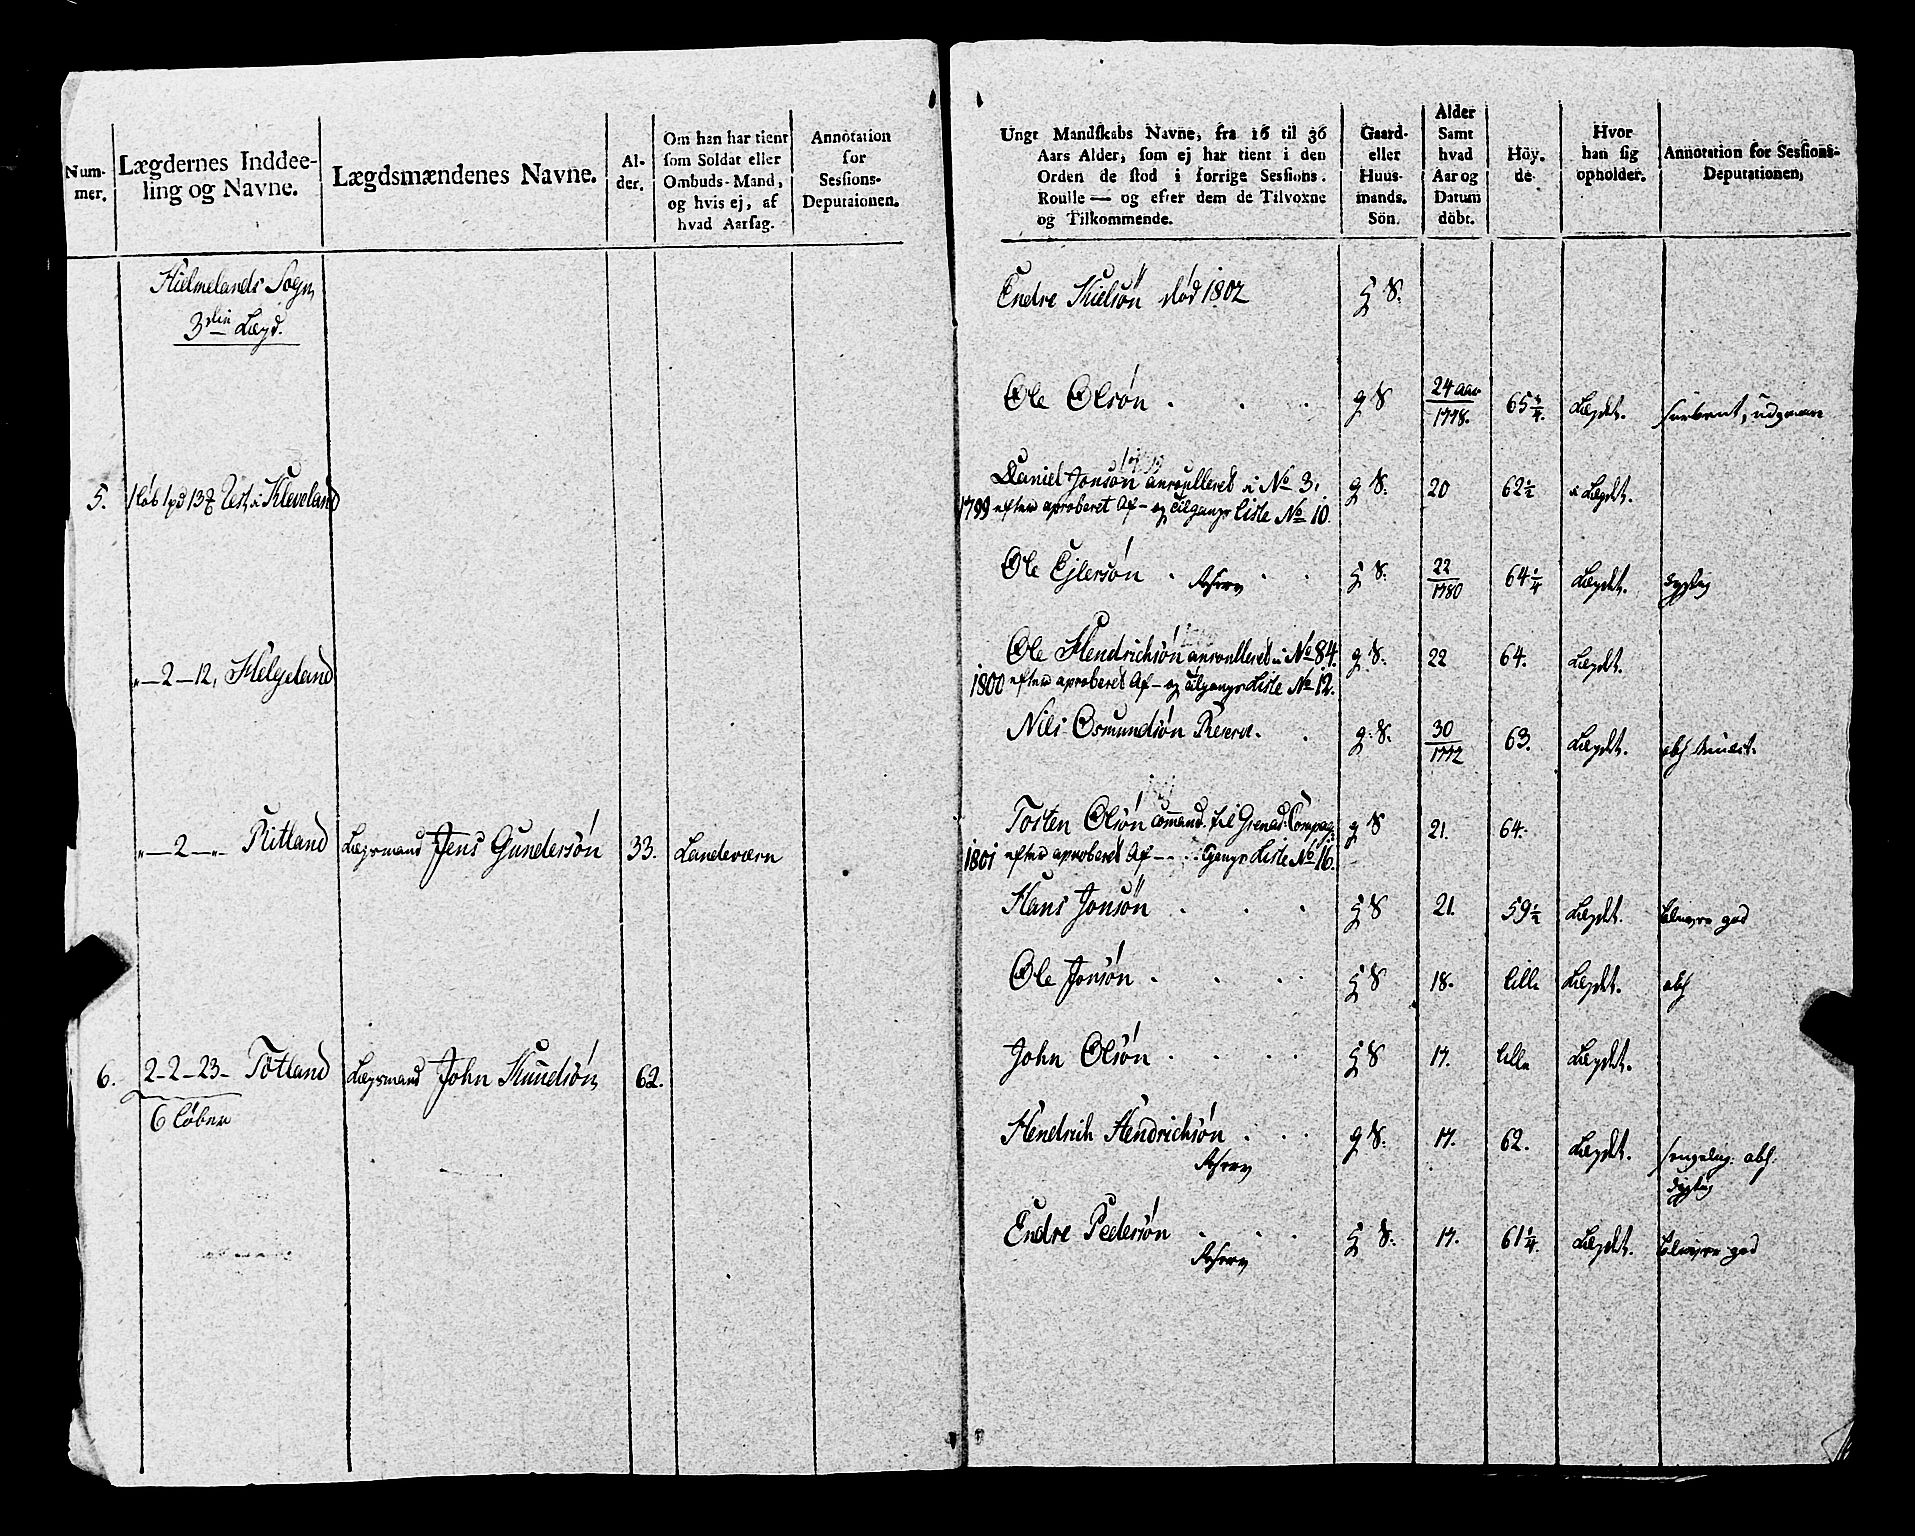 Num-
mer.
Lægdernes Inddee-
ling og Navne.
Lægdsmændenes Navne.
Al-
der.
Om han har tient
som Soldat eller
Ombuds-Mand,
og hvis ej, af
hvad Aarsag.
Annotation
for
Sessions-
Deputaionen.
Hielmelands Sogn,
3die Lægd.
5. 1 löb 1 pd 13 Kleveland
"—2—12, Helgeland
"—2—"— Ritland Lægsmand Jens Gundersön 33. Landeværn
6. 2-2-23- Tötland Lægsmand John Knudsön, 62.
6 Löber
Ungt Mandskabs Navne, fra 16 til 36
Aars Alder, som ej har tient i den
Orden de stod i forrige Sessions.
Roulle — og efter dem de Tilvoxne
og Tilkommende.
Gaard-
eller
Huus-
mands.
Sön.
Alder
Samt
hvad
Aar og
Datum
döbt.
Höy.
de.
Hvor
han sig
opholder.
Annotation for Sessions-
Deputationen,
Endre Nielsön död 1802 g S.
Ole Olsön . . . g S 24 aar 1778. 65 3/4. Lægdet.
Daniel Jonsön anroulleret i No 3. g S. 20 62 1/2 i Lægdet.
1799 efter aproberet Af- og Tilgangs Liste No 10.
Ole Ejlersön . Reserv . . g S. 22 1780 64 1/4 Lægdet. dygtig
Ole Hendrichsön anroulleret i No 84. g S. 22 64. Lægdet.
1800 efter aproberet Af- og Tilgangs Liste No 12.
Nils Osmundsön Reserv. . g. S. 30 1772 63. Lægdet.
Tosten Olsön command. til Grenad: Compag: g S 21. 64.
1801 efter aproberet Af- Gangs Liste No 16.
Hans Jonsön . . . g S 21. 59 1/2 Lægdet.
Ole Jonsön . . . g S 18. lille Lægdet.
John Olsön . . . g S 17. lille Lægdet.
Hendrich Hendrichsön . . . g S. 17. 62. Lægdet.
Reserv dygtig
Endre Pedersön . . . g S. 17. 61 1/4. Lægdet.
Reserv